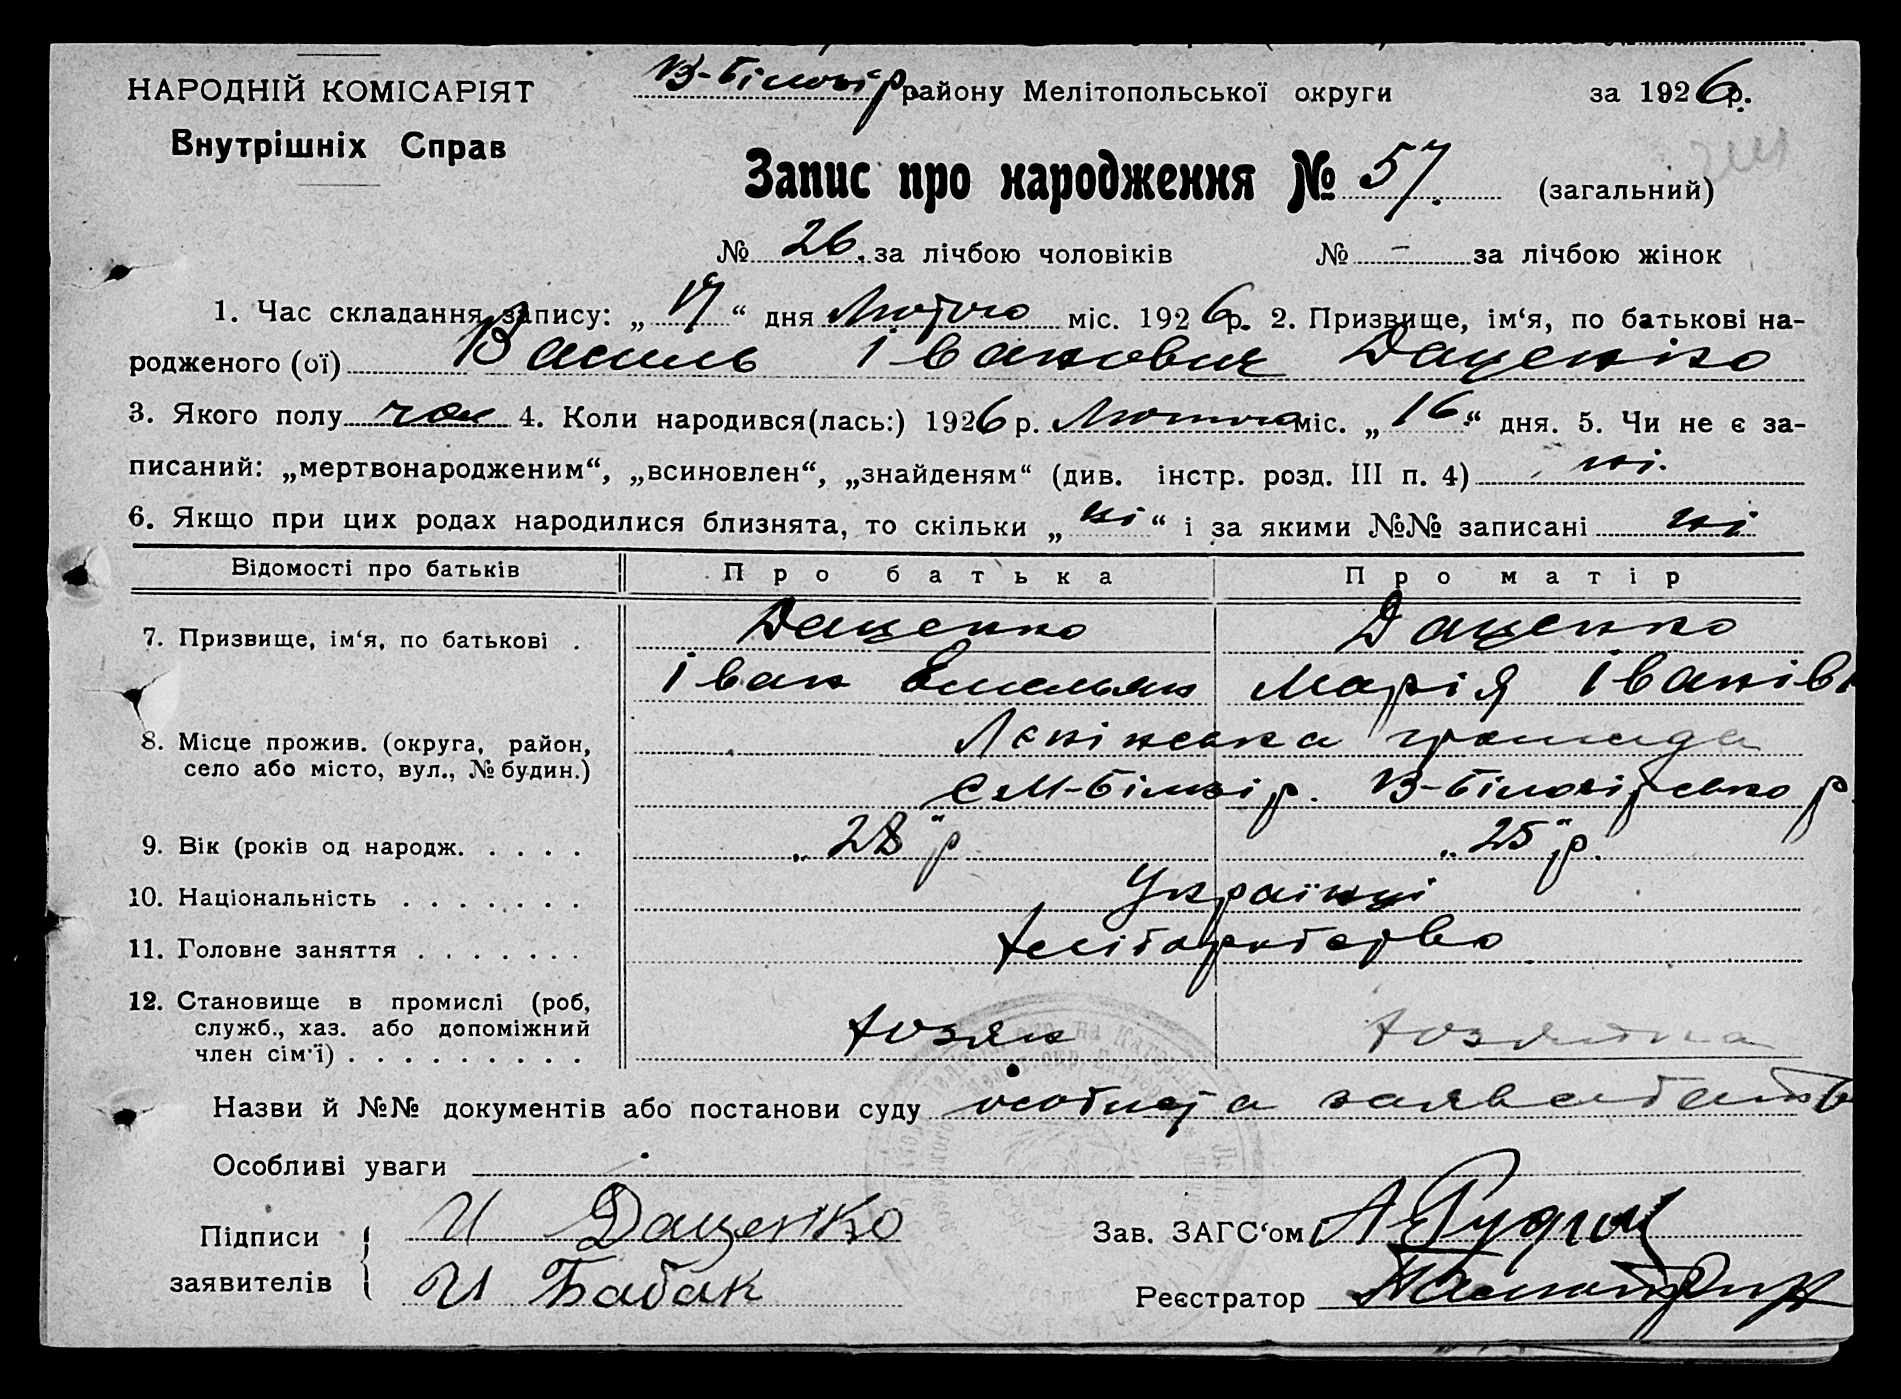 НАРОДНІЙ КОМІСАРІЯТ
Внутрішніх Справ
В-Білозір. району Мелітопольської округи за 1926 р.
Запис про народження № 57. (загальний)
№ 26. за лічбою чоловіків № - за лічбою жінок
1. Час складання запису: „17“ дня Лютого міс. 1926 р. 2. Призвище, ім‘я, по батькові на-
родженого (ої) Василь Іванович Даценко
3. Якого полу чол 4. Коли народився(лась:) 1926 р. Лютого міс. „16“ дня. 5. Чи не є за-
писаний: „мертвонародженим“, „всиновлен“, „знайденям“ (див. інстр. розд. III п. 4) ні.
6. Якщо при цих родах народилися близнята, то скільки „ні“ і за якими №№ записані ні
Відомості про батьків Про батька Про матір
7. Призвище, ім‘я, по батькові . Даценко Даценко
Іван Омельян Марія Іванівн
8. Місце прожив. (округа, район, Ленінська громада
село або місто, вул., № будин.) с М-Білозір. В-Білозірсько р.
9. Вік (років од народж. . . . . „28“ р „25“ р.
10. Національність . . . . . . . Українці
11. Головне заняття . . . . . . . хліборобство
12. Становище в промислі (роб,
служб., хаз. або допоміжний хозяїн хозяйка
член сім‘ї) . . . . . . . . . .
Назви й №№ документів або постанови суду особиста заява
Особливі уваги
Підписи И Даценко Зав. ЗАГС‘ом
заявителів И Бабак Реєстратор